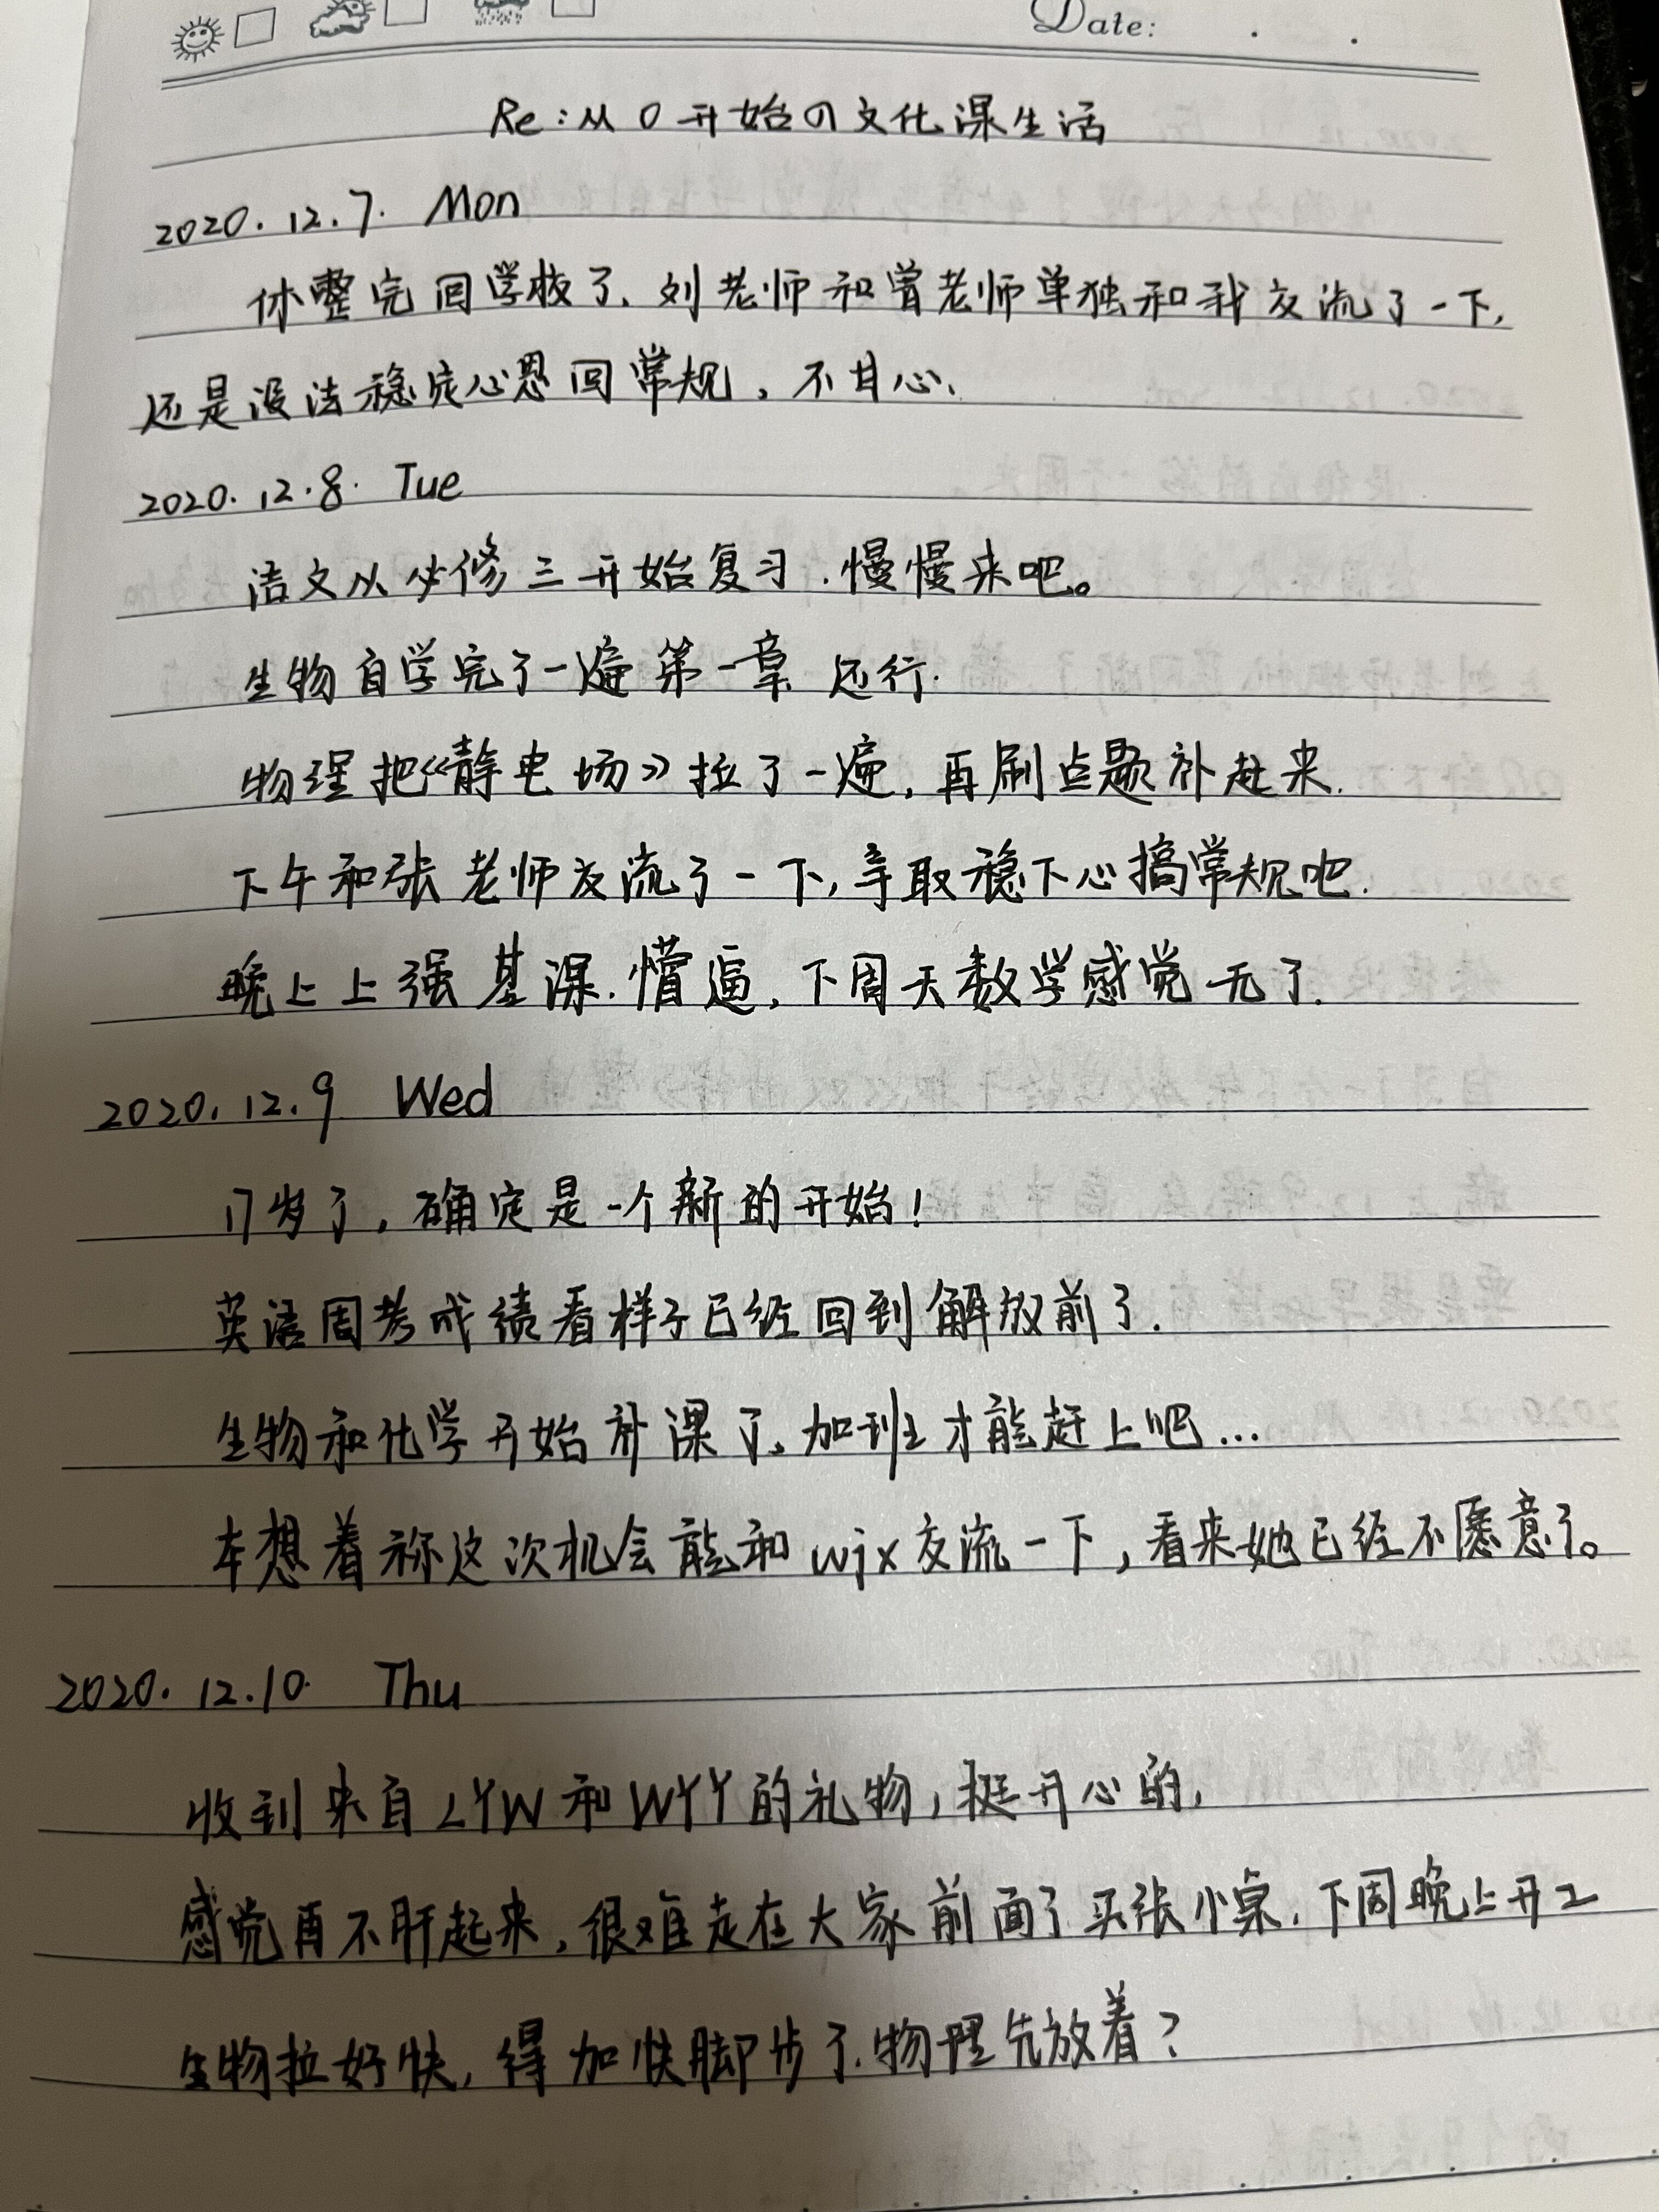 Date: . .
Re:从0开始の文化课生活
2020.12.7. Mon
休整完回学校了.刘老师和曾老师单独和我交流了一下,
还是没法稳定心思回常规,不甘心.
2020.12.8. Tue
语文从必修三开始复习.慢慢来吧。
生物自学完了一遍第一章.还行.
物理把《静电场》拉了一遍,再刷点题补起来.
下午和张老师交流了一下,争取稳下心搞常规吧.
晚上上强基课.懵逼,下周天数学感觉无了.
2020.12.9 Wed
17岁了,确定是一个新的开始!
英语周考成绩看样子已经回到解放前了.
生物和化学开始补课了.加班才能赶上吧...
本想着称这次机会能和wjx交流一下,看来她已经不愿意了。
2020.12.10. Thu
收到来自LYW和WYY的礼物,挺开心的,
感觉再不肝起来,很难走在大家前面了.买张小桌.下周晚上开工
生物拉好快,得加快脚步了.物理先放着?